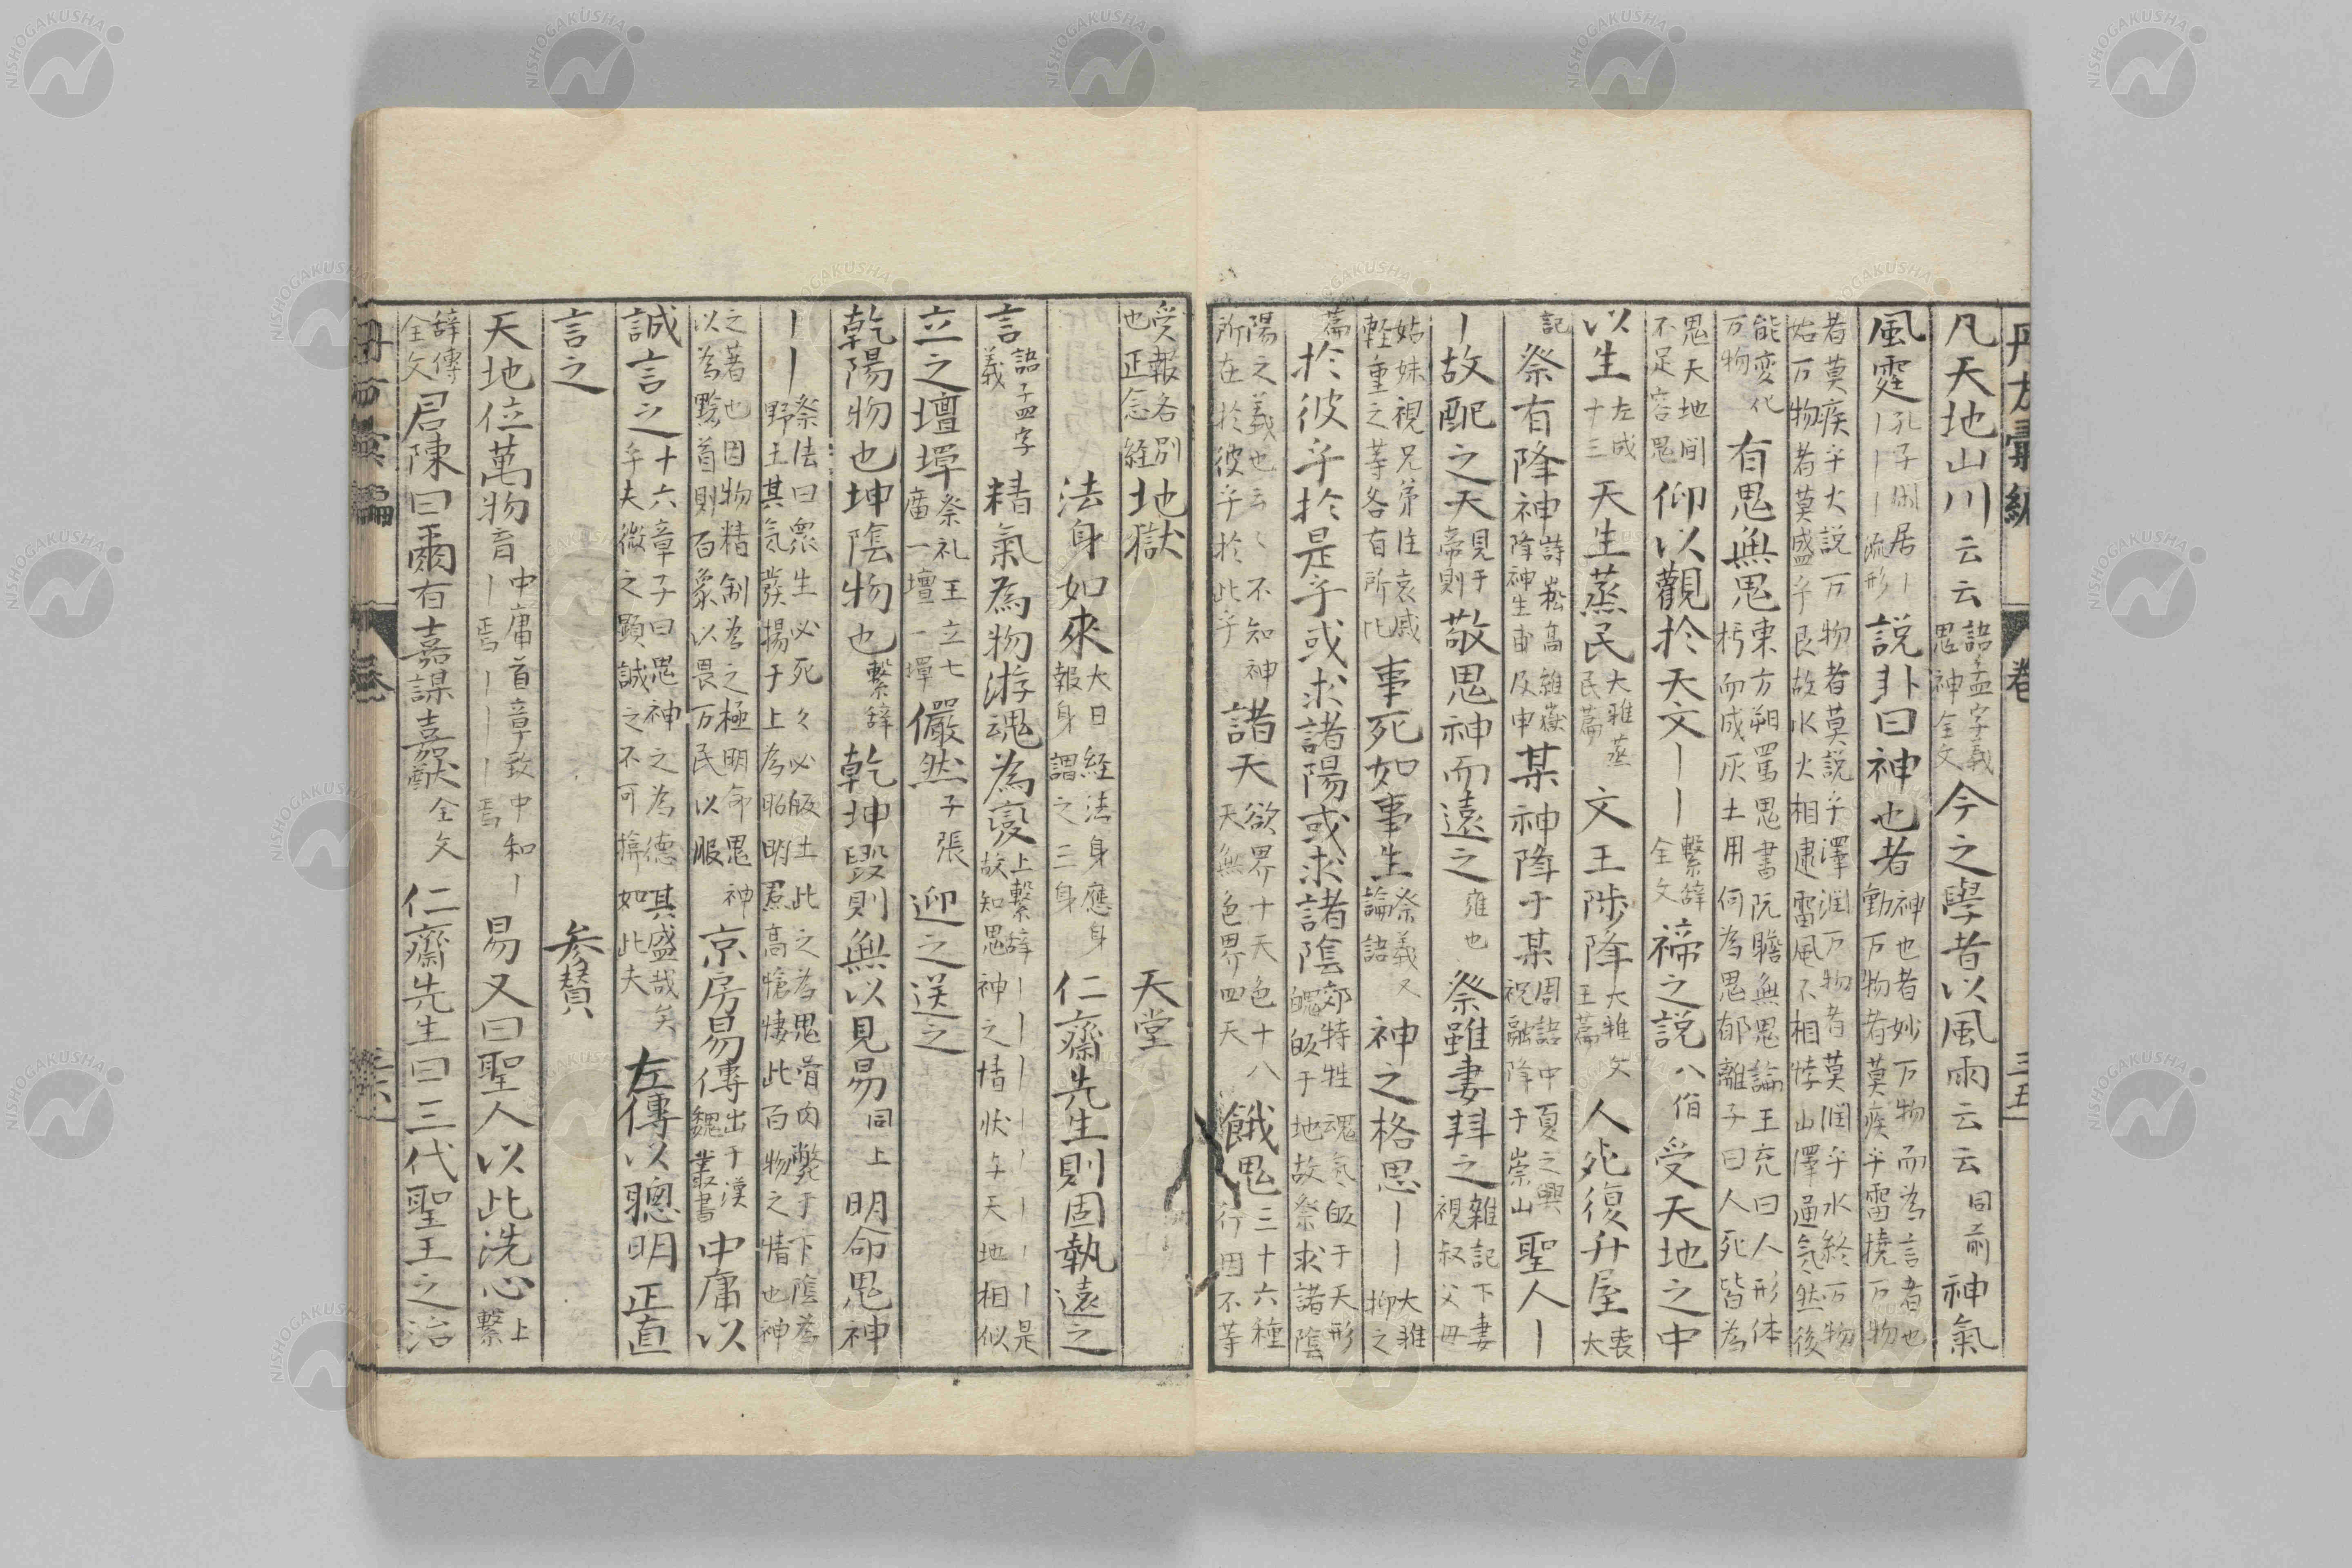 凡天地山川云云語孟字義鬼神全文今之學者以風雨云云同前神氣
風霆孔子閒居｜｜｜｜流形說卦曰神也者神也者妙万物而為言者也動万物者莫疾乎雷撓万物
者莫疾乎大說万物者莫說乎澤潤万物者莫潤乎水終万物始万物者莫盛乎艮故水火相逮雷風不相悖山澤通気然後
能変化万物有鬼無鬼東方朔罵鬼書阮瞻無鬼論王充曰人形体朽而成灰土用何為鬼郁離子曰人死皆為
鬼天地間不足容鬼仰以觀於天文｜｜繫辞全文禘之說八佾受天地之中
以生左成十三天生蒸民大雅蒸民篇文王陟降大雅文王篇人死復升屋大喪
記祭有降神詩崧高維嶽降神生甫及申某神降于某周語中夏之興祝融降于崇山聖人｜
｜故配之天見于帝則敬鬼神而遠之雍也祭雖妻拜之雜記下妻視叔父母
姑妹視兄弟注哀戚軽重之等各有所比事死如事生祭義又論語神之格思｜｜大雅抑之
篇於彼乎於是乎或求諸陽或求諸陰郊特牲魂気皈于天形魄皈于地故祭求諸陰
陽之義也云々不知神所在於彼乎於此乎諸天欲界十天色十八天無色界四天餓鬼三十六種行因不等
受報各別也正念経地獄 天堂
法身如來大日経法身應身報身謂之三身仁齋先生則固執遠之
言語子四字義精氣為物游魂為変上繋辞｜｜｜｜｜｜｜是故知鬼神之情状与天地相似
立之壇墠祭礼王立七廟一壇一墠儼然子張迎之送之
乾陽物也坤陰物也繫辞乾坤毀則無以見易同上明命鬼神
｜｜祭法曰衆生必死々必皈土此之為鬼骨肉斃于下陰為野土其気発揚于上為昭明焄蒿愴悽此百物之情也神
之著也因物精制為之極明命鬼神以為黔首則百象以畏万民以服京房易傳出于漢魏叢書中庸以
誠言之十六章子曰鬼神之為德其盛哉矣乎夫微之顕誠之不可揜如此夫左傳以聰明正直
言之 参賛
天地位萬物育中庸首章致中和｜｜焉｜｜｜焉易又曰聖人以此洗心上繋
辞傳全文君陳曰爾有嘉謀嘉猷全文仁齋先生曰三代聖王之治